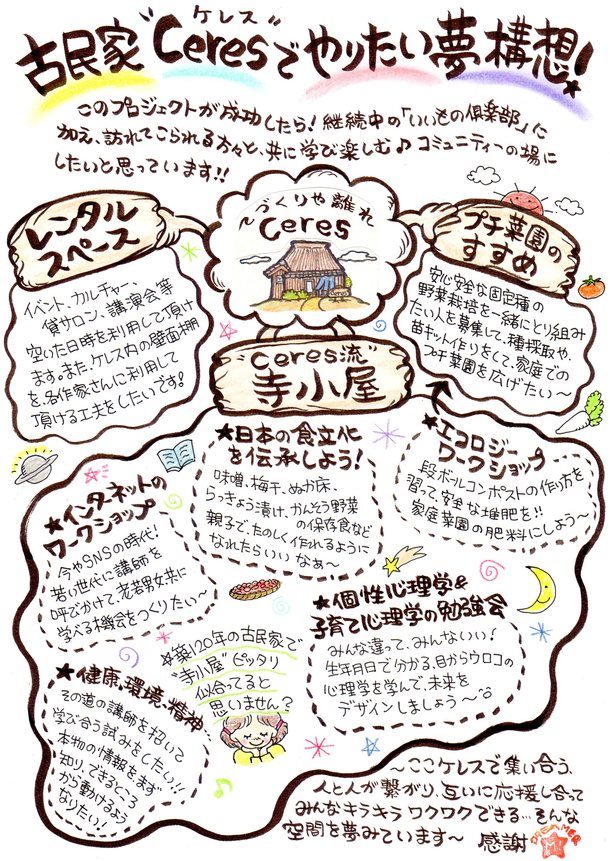 ケレス
古民家"Ceres"でやりたい夢構想!
このプロジェクトが成功したら!継続中の「いいもの倶楽部」に
加え、訪れてこられる方々と、共に学び楽しむ♪コミュニティーの場に
したいと思っています!!
レンタル
スペース
イベント、カルチャー、
貸サロン、講演会等
空いた日時を利用して頂け
ます。また、ケレス内の壁面棚
を、各作家さんに利用して
頂ける工夫をしたいです!
〜づくりや離れ
Ceres
プチ菜園の
すすめ
安心安全な固定種の
野菜栽培を一緒にとり組み
たい人を募集して、種採取や、
苗キット作りをして、家庭での
プチ菜園を広げたい〜
"Ceres流"
寺小屋
★日本の食文化
を伝承しよう!
味噌、梅干、ぬか床、
らっきょう漬け、かんそう野菜
の保存食など
親子で、たのしく作れるように
なれたらいい なぁ〜
★エコロジー
ワークショップ
段ボールコンポストの作り方を
習って、安全な堆肥を!!
家庭菜園の肥料にしよう〜
★インターネットの
ワークショップ
今やSNSの時代!
若い世代に講師を
呼びかけて、老若男女共に
学べる機会をつくりたい〜
★個性心理学&
子育て心理学の勉強会
みんな違って、みんないい!
生年月日で分かる、目からウロコの
心理学を学んで、未来を
デザインしましょう〜
★築120年の古民家で
"寺小屋"ピッタリ
似合ってると
思いません?
★健康、環境、精神…
その道の講師を招いて
学び合う試みをしたい!!
本物の情報をまず
知り、できるところ
から動けるよう
なりたい!
〜ここケレスで集い合う、
人と人が繋がり、互いに応援し合って
みんなキラキラ ワクワクできる…そんな
空間を夢みています〜 感謝
DREAMER
M